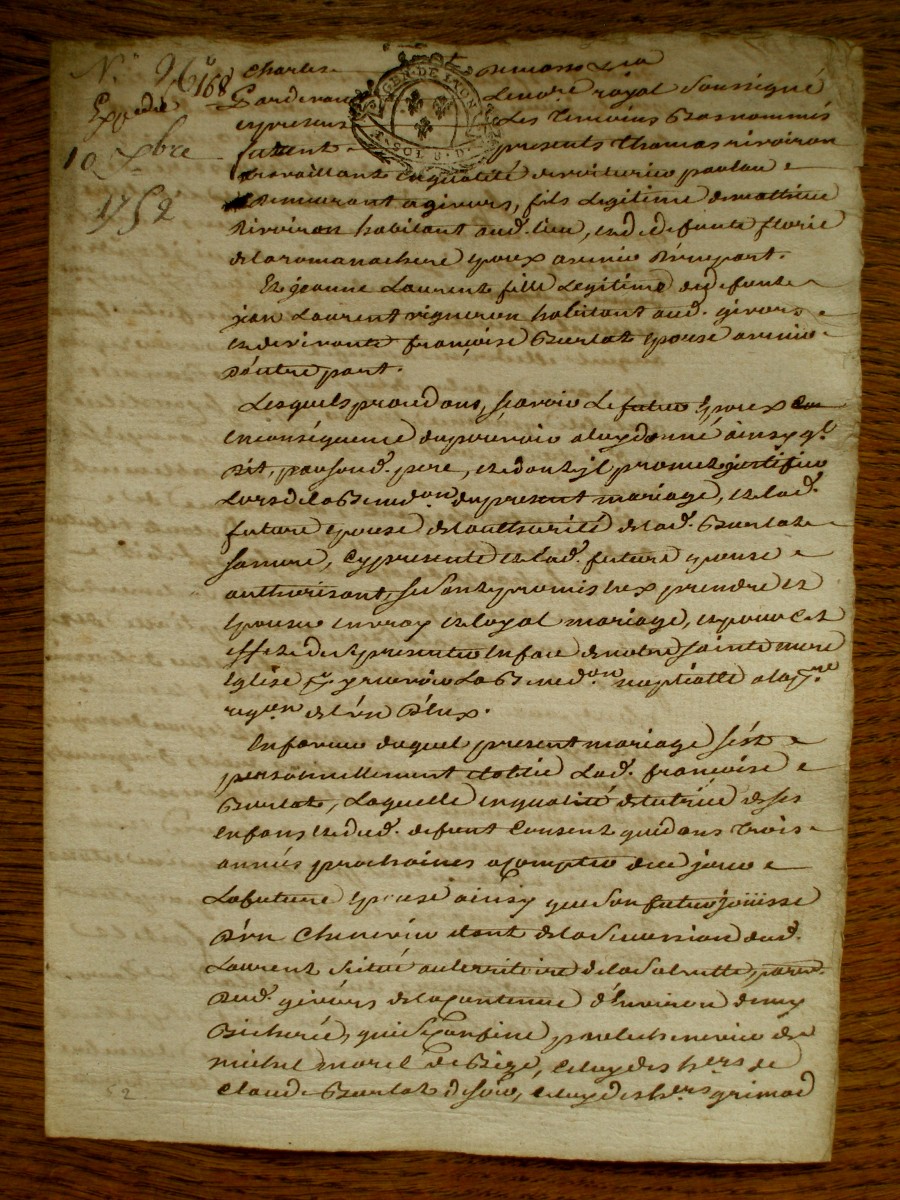 N.° 96° 168
Expediée
10 Xbre
1752
Charles Demasso
Pardevant Lenore royal Soussigné
et presens Les Temoins Basnommés
furent presents Thomas rivoiron
travaillant en qualité de voiturier par eau
Demeurant a givors, fils Legitime de mattieu
Rivoiron habitant aud. Lieu, et de defunte florie
de La romanachere epoux avenir D'une part.
Et jeanne Laurent fille Legitime de defunt
jean Laurent vigneron habitant aud. givors
et de vivante françoise Burlat epouse avenir
D'autre part.
Lesquels procedans, Scavoir Le futur Epoux
en conséquence du pouvoir a luy donné ainsy q'l
Dit, par sond. pere, et dont jl promet justifier
Lors de la Bened.on du present mariage, et Lad.
future epouse de L'authorité de Lad. Burlat
Sa mere, Cy presente et Lad. future epouse
authorisant, Se sont promis Eux prendre et
Epouser en vray et Loyal mariage, et pour Cet
effet de Se presenter en face de notre Sainte mere
Eglise pr y recevoir La Bened.on nuptialle a la p.re
requ.on de L'un D'Eux.
En faveur duquel present mariage s'est
personnellement Etablie Lad. françoise
Burlat, Laquelle en qualité de tutrice de ses
Enfans et dud. defunt Consent que dans Trois
années prochaines a Compter de ce jour
La future epouse ainsy que Son futur jouisse
D'un Chenevier etant de La Succession dud.
Laurent Situé au territoire de la parr.
Dud. givors de la Contenue d'Environ deux
Bicherée, qui Se Confine par le chenevier de
michel morel de Bege, Celuy des hers de
Claude Burlat de soir, Celuy des hers grimod
52
GEN. DE LYON